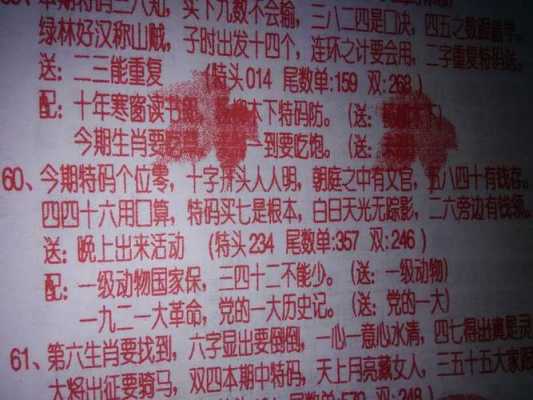 本期特码三八知, 买下九数不会输, 三八二四是口诀, 四五之数跟着学。
绿林好汉称山贼, 子时出发十四个, 连环之计要会用, 二字重复
送: 二三能重复 (特头014 尾数单:159 双:268)
配: 十年寒窗读书 木下特码防。(送:
今期生肖要 一到要吃饱。(送:
60、今期特码个位零, 十字拼头人人明, 朝庭之中有文官, 五八四十有钱存。
四四十六用口算, 特码买七是根本, 白日天光无踪影, 二六旁边有钱领。
送: 晚上出来活动 (特头234 尾数单:357 双:246)
配: 一级动物国家保, 三四十二不能少。(送: 一级动物)
一九二一大革命, 党的一大历史记。(送: 党的一大)
61、第六生肖要找到, 六字显出要倒倒, 一心一意心水清, 四七得出真是灵
大将出征要骑马, 双四本期中特码, 天上月亮戴女人, 三五十五大家跟